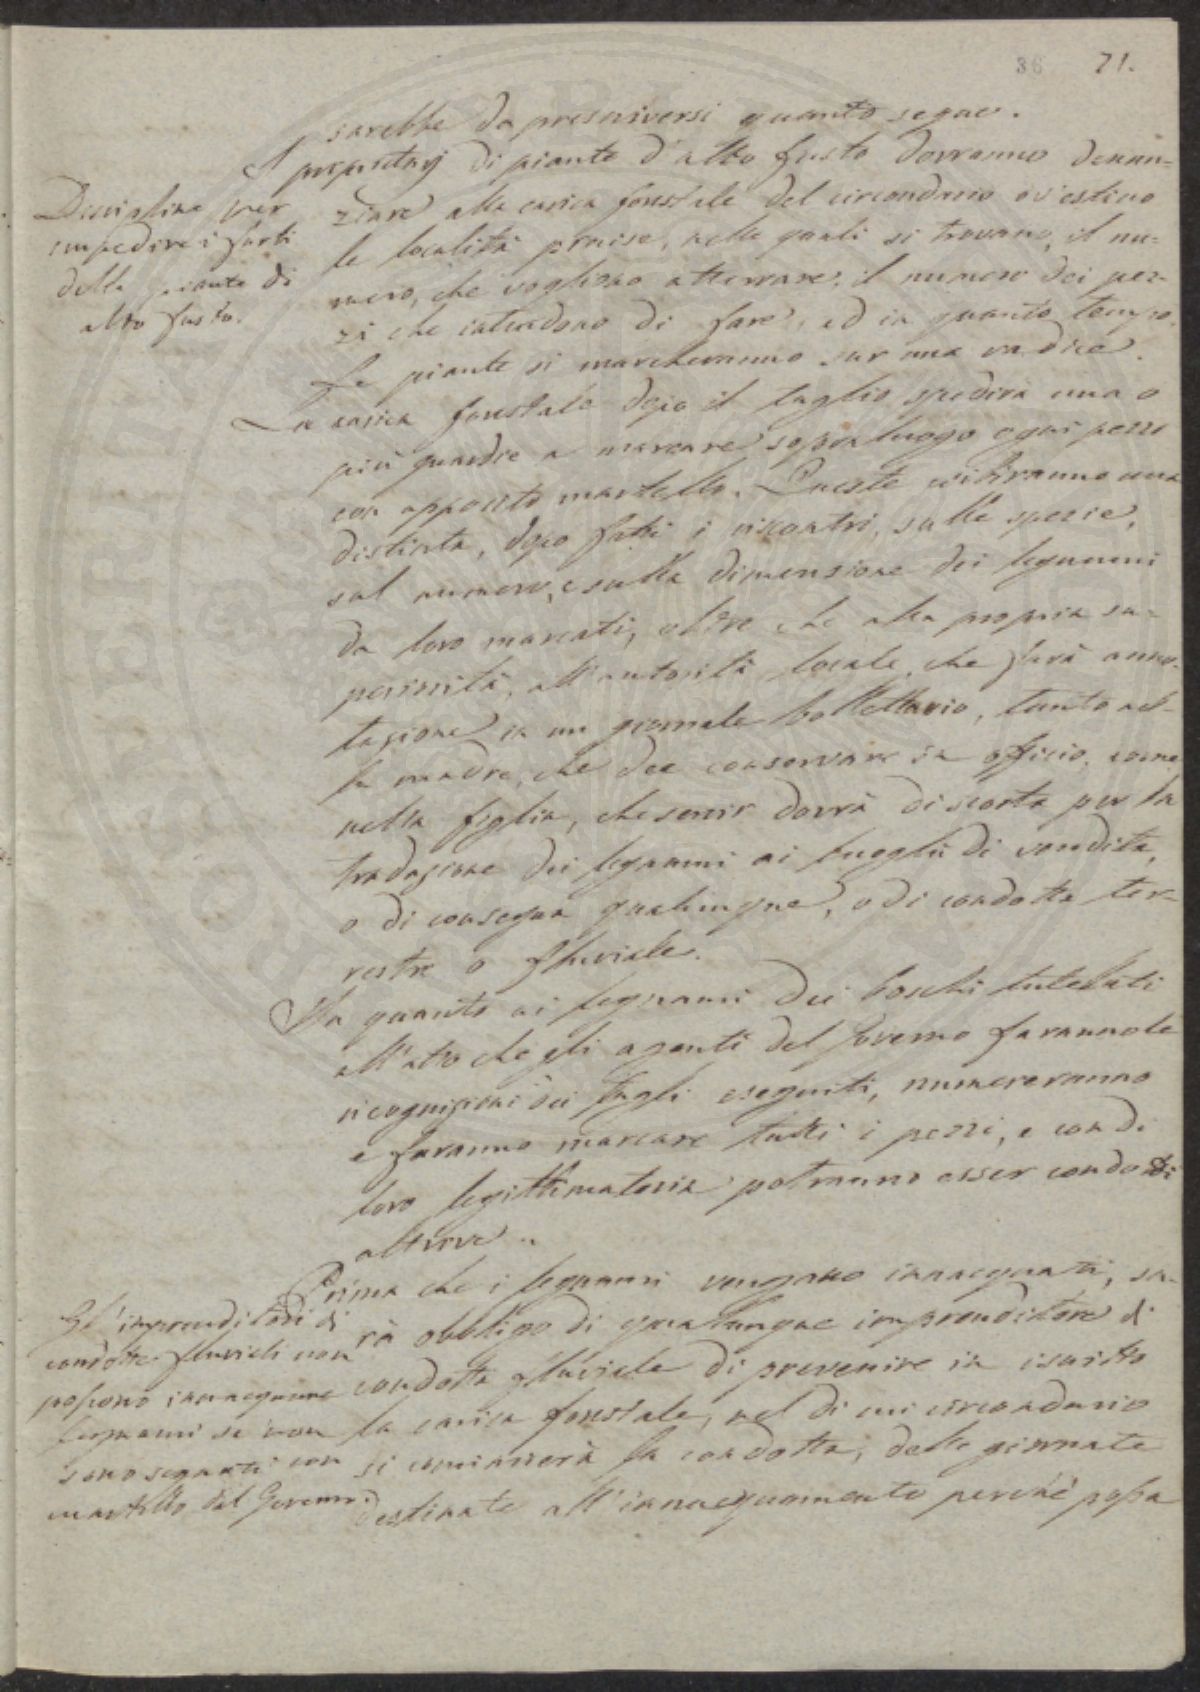 36 71.
sarebbe da prescriversi quanto segue.
I proprietarj di piante d'alto fusto dovranno denun-
ziare alla carica forestale del circondario ov'estino
le località precise, nelle quali si trovano, il nu-
mero, che vogliono atterrare, il numero dei pez-
zi che intendono di fare, ed in quanto tempo.
Le piante si marcheranno sur una radice.
La carica forestale dopo il taglio spedirà una o
più guardie a marcare sopraluogo ogni pezzo
con apposito martello. Queste esibiranno una
distinta, dopo fatti i riscontri, sulle spezie,
sul numero, e sulla dimensione dei legnami
da loro marcati, oltre che alla propria su-
periorità, all'autorità locale, che farà anno-
tazione in un giornale bollettario, tanto nel-
la madre, che dee conservare in officio, come
nella figlia, che servir dovrà di scorta per la
tradazione dei legnami ai luoghi di vendita,
o di consegna qualunque, o di condotta ter-
restre o fluviale.
In quanto ai legnami dei boschi tutelati
all'atto che gli agenti del Governo faranno le
ricognizioni dei tagli eseguiti, numereranno
e faranno marcare tutti i pezzi, e con di
loro legittimatoria potranno esser condotti
altrove.
Prima che i legnami vengano innacquati, sa-
rà obbligo di qualunque imprenditore di
condotta fluviale di prevenire in iscritto
la carica forestale, nel di cui circondario
si comincerà la condotta, delle giornate
destinate all'innacquamento perchè possa
Discipline per
impedire i furti
delle piante di
alto fusto.
Gl'imprenditori di
condotte fluviali non
possono innacquare
legnami se non
sono segnati con
martello del Governo.